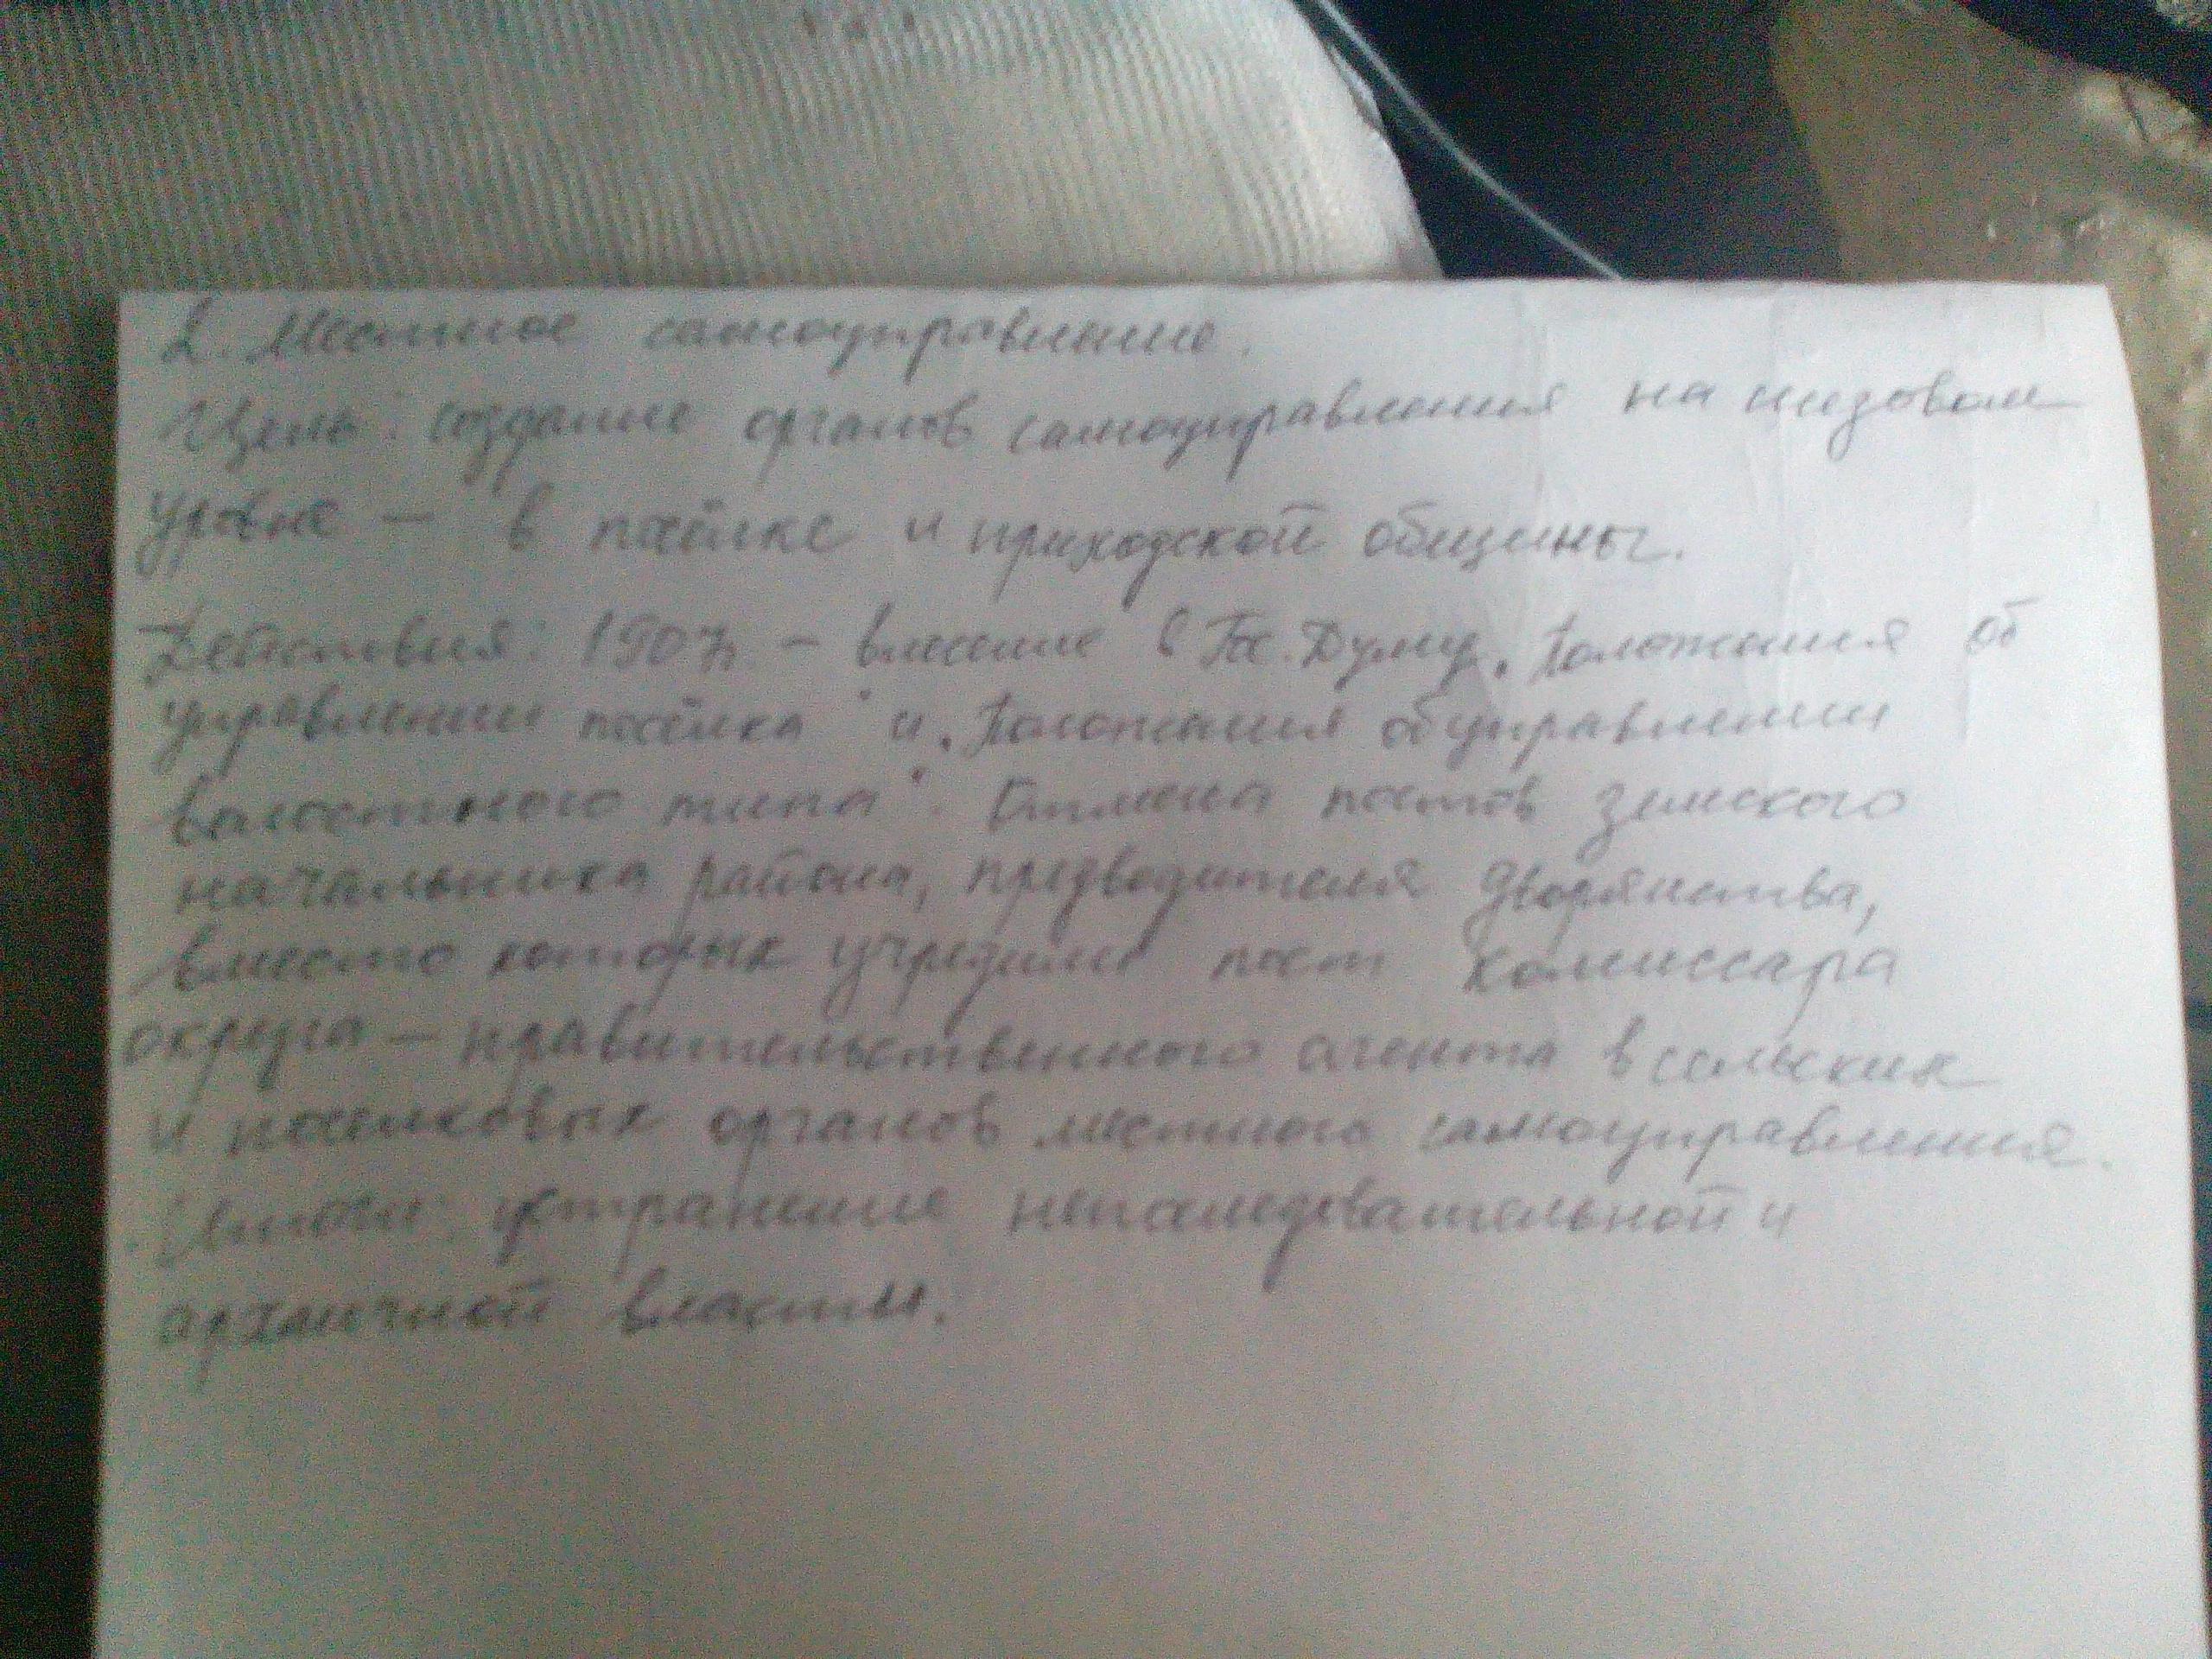 2. Местное самоуправление.
Цель: создание органов самоуправления на низовом
уровне — в посёлке и приходской общины.
Действия: 1907г. — внесение в Гос. Думу „Положения об
управлении посёлка" и „Положения об управлении
волостного типа". Отмена постов земского
начальника района, предводителя дворянства,
вместо которых учредили пост комиссара
округа — правительственного агента в сельских
и поселковых органов местного самоуправления.
Итоги: устранение непоследовательной и
архаичной власти.